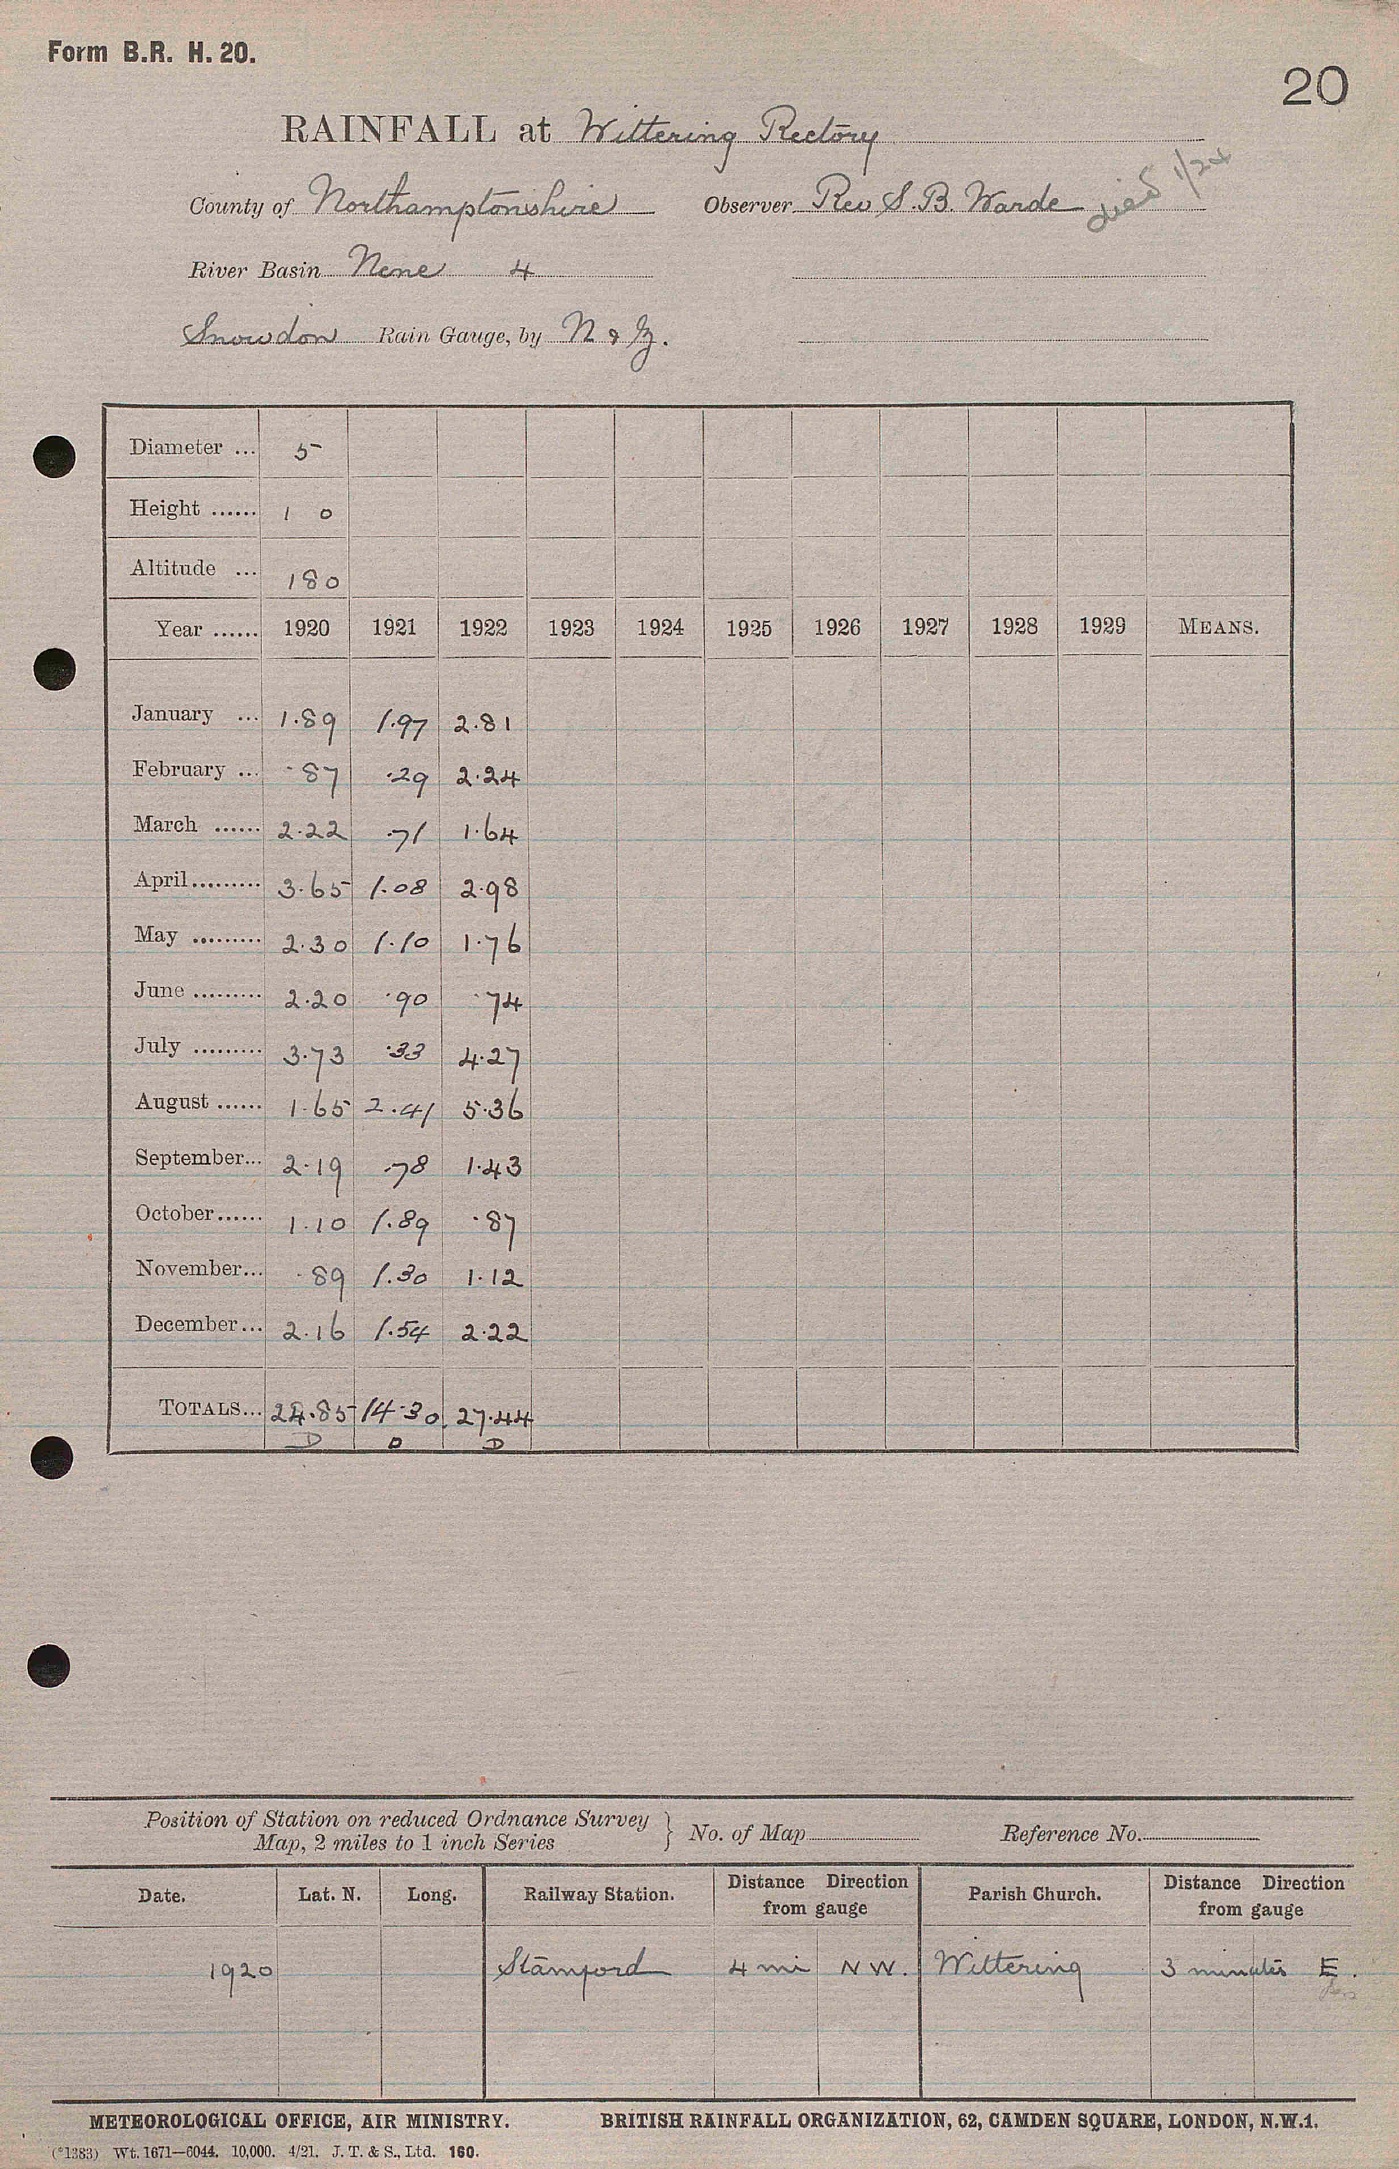 Form B.R. H. 20.
20
RAINFALL at Wittering Rectory
County of Northamptonshire Observer Rev S. B. Warde died 1/24
River Basin Nene 4
Snowdon Rain Gauge, by N & Z.
Diameter ... 5
Height ...... 1 0
Altitude ... 180
Year ...... 1920 1921 1922 1923 1924 1925 1926 1927 1928 1929 MEANS.
January ... 1.89 1.97 2.81
February ... .87 .29 2.24
March ...... 2.22 .71 1.64
April......... 3.65 1.08 2.98
May ......... 2.30 1.10 1.76
June ......... 2.20 .90 .74
July ......... 3.73 .33 4.27
August ...... 1.65 2.41 5.36
September... 2.19 .78 1.43
October...... 1.10 1.89 .87
November... .89 1.30 1.12
December... 2.16 1.54 2.22
TOTALS... 24.85 14.30 27.44
D D D
Position of Station on reduced Ordnance Survey
Map, 2 miles to 1 inch Series } No. of Map Reference No.
Date. Lat. N. Long. Railway Station. Distance Direction from gauge Parish Church. Distance Direction from gauge
1920 Stamford 4 mi N W. Wittering 3 minutes E.
METEOROLOGICAL OFFICE, AIR MINISTRY. BRITISH RAINFALL ORGANIZATION, 62, CAMDEN SQUARE, LONDON, N.W.1.
(*1383) Wt. 1671—6044. 10,000. 4/21. J. T. & S., Ltd. 160.